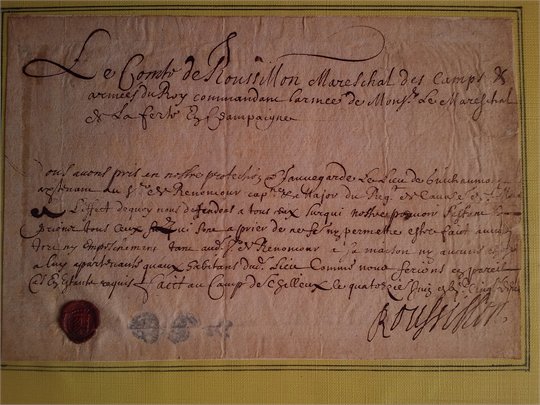 Le Comte de Roussillon Mareschal des Camps &
armees du Roy commandant larmee de Monsr. Le Mareschal
de La ferte En Champaigne
Nous avons pris en nostre protection & Sauvegarde Le Lieu de
apartenant au Sr. de Renomour cap.ne & Major du Reg.t de
A L'effect dequoy nous deffendons a tous ceux surqui nostre pouvoir s'estend &
prions tous ceux qui sont a prier de ne faire ny permettre estre faict aucun
tort ny emprisonnement tant aud. Sr. de Renomour a sa maison ny aucuns
a luy apartenants quaux habitans dud. Lieu Comme nous ferions en pareil
Cas En estants requis faict au Camp de le quatorze
Roussillon